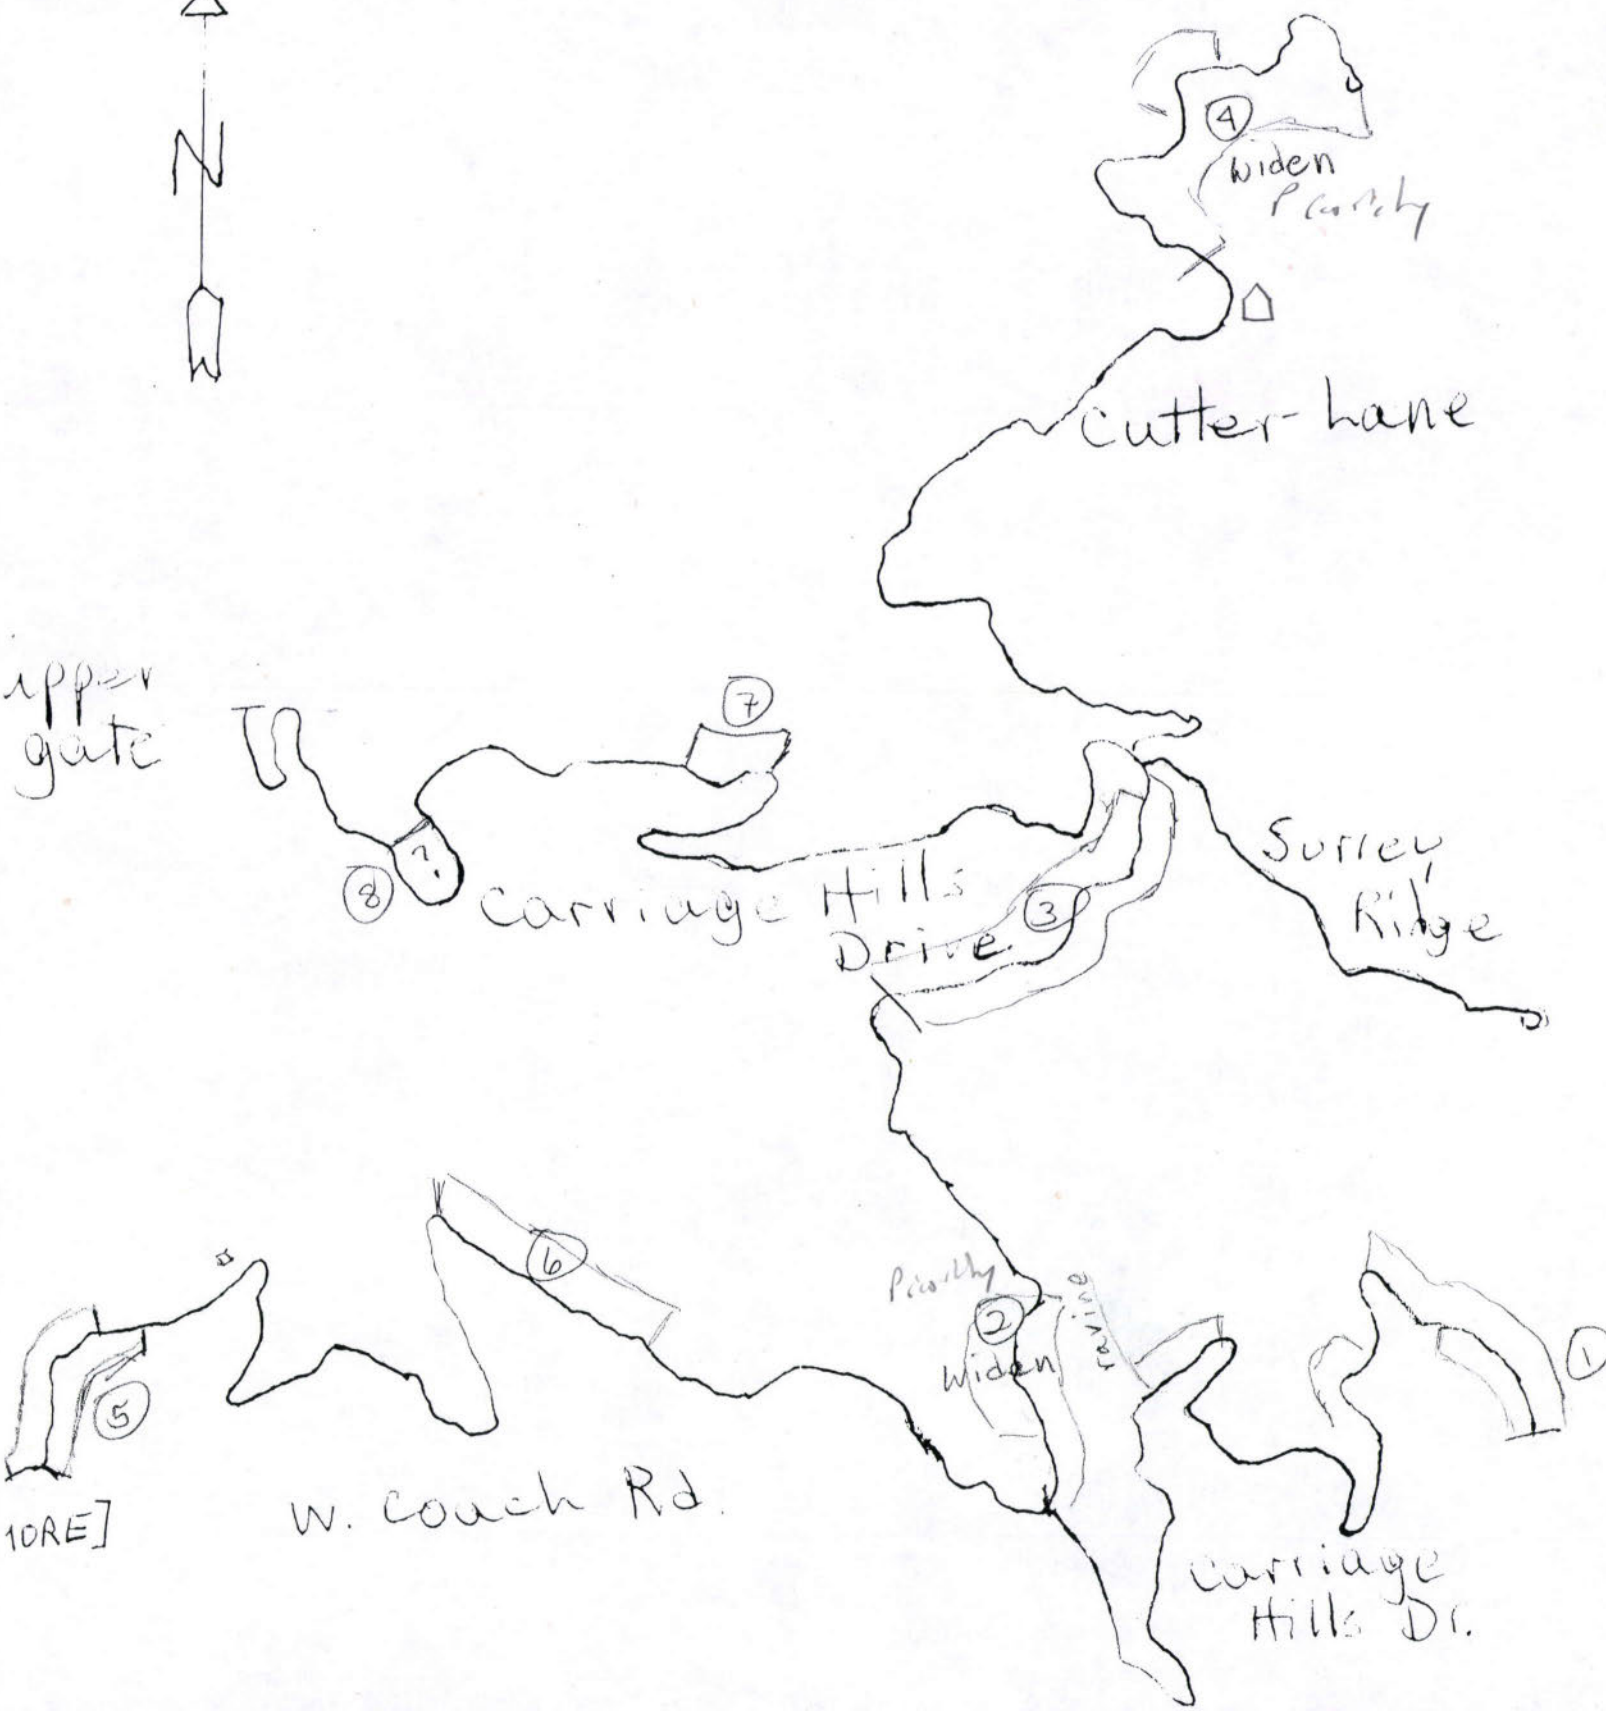 N
4
Widen
Priority
Cutter Lane
upper
gate
7
8
?
Carriage Hills
Drive
3
Surrey
Ridge
6
Priority
2
Widen
ravine
1
5
10RE]
W. Coach Rd.
Carriage
Hills Dr.